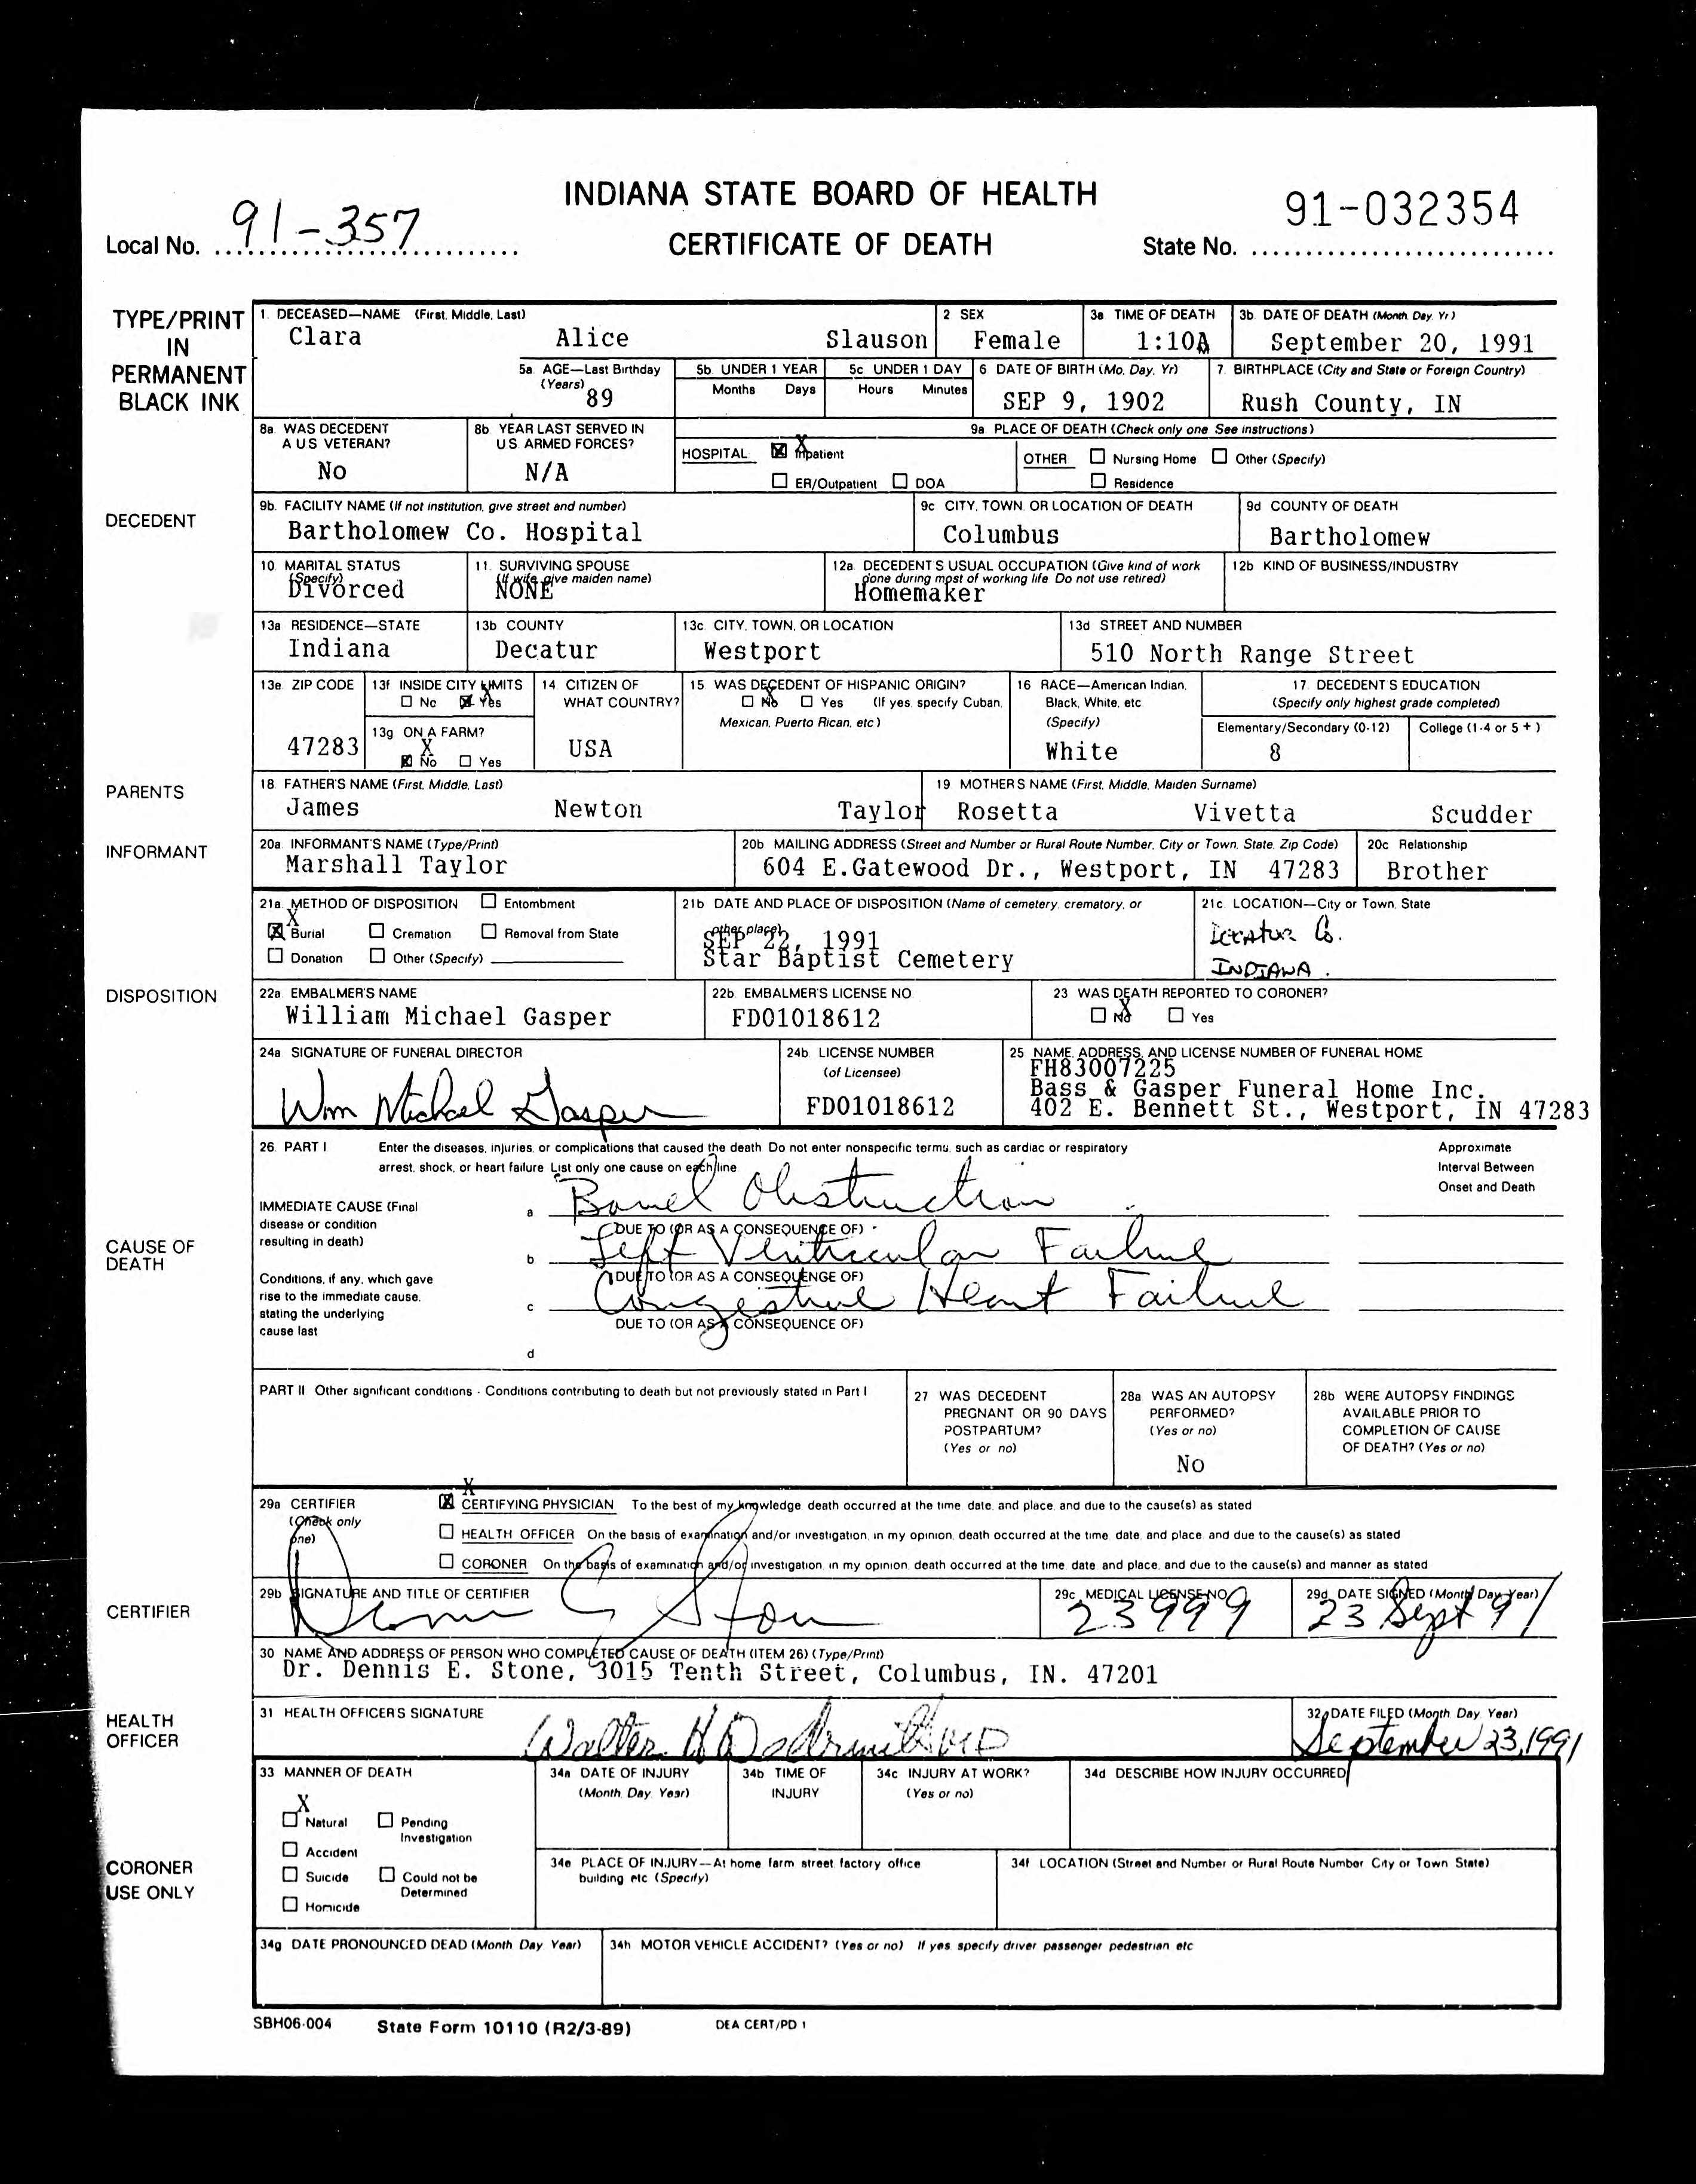 INDIANA STATE BOARD OF HEALTH
CERTIFICATE OF DEATH
Local No. 91-357
State No. 91-032354
TYPE/PRINT IN PERMANENT BLACK INK
1. DECEASED—NAME (First, Middle, Last)
Clara Alice Slauson
2 SEX
Female
3a TIME OF DEATH
1:10A
3b. DATE OF DEATH (Month, Day, Yr)
September 20, 1991
5a. AGE—Last Birthday (Years)
89
5b. UNDER 1 YEAR
Months Days
5c UNDER 1 DAY
Hours Minutes
6 DATE OF BIRTH (Mo, Day, Yr)
SEP 9, 1902
7. BIRTHPLACE (City and State or Foreign Country)
Rush County, IN
DECEDENT
8a. WAS DECEDENT A U S VETERAN?
No
8b. YEAR LAST SERVED IN U.S. ARMED FORCES?
N/A
9a. PLACE OF DEATH (Check only one See instructions)
HOSPITAL X Inpatient
ER/Outpatient DOA
OTHER Nursing Home Other (Specify)
Residence
9b. FACILITY NAME (If not institution, give street and number)
Bartholomew Co. Hospital
9c CITY, TOWN, OR LOCATION OF DEATH
Columbus
9d COUNTY OF DEATH
Bartholomew
10. MARITAL STATUS (Specify)
Divorced
11. SURVIVING SPOUSE (If wife, give maiden name)
NONE
12a. DECEDENT'S USUAL OCCUPATION (Give kind of work done during most of working life Do not use retired)
Homemaker
12b KIND OF BUSINESS/INDUSTRY
13a RESIDENCE—STATE
Indiana
13b COUNTY
Decatur
13c. CITY, TOWN, OR LOCATION
Westport
13d STREET AND NUMBER
510 North Range Street
13e. ZIP CODE
47283
13f INSIDE CITY LIMITS
No X Yes
13g ON A FARM?
X No Yes
14 CITIZEN OF WHAT COUNTRY?
USA
15 WAS DECEDENT OF HISPANIC ORIGIN?
X No Yes (If yes, specify Cuban, Mexican, Puerto Rican, etc)
16 RACE—American Indian, Black, White, etc (Specify)
White
17. DECEDENT S EDUCATION (Specify only highest grade completed)
Elementary/Secondary (0-12)
8
College (1-4 or 5 +)
PARENTS
18. FATHER'S NAME (First, Middle, Last)
James Newton Taylor
19 MOTHER S NAME (First, Middle, Maiden Surname)
Rosetta Vivetta Scudder
INFORMANT
20a. INFORMANT'S NAME (Type/Print)
Marshall Taylor
20b MAILING ADDRESS (Street and Number or Rural Route Number, City or Town, State, Zip Code)
604 E.Gatewood Dr., Westport, IN 47283
20c Relationship
Brother
DISPOSITION
21a METHOD OF DISPOSITION
Entombment
X Burial Cremation Removal from State
Donation Other (Specify)
21b DATE AND PLACE OF DISPOSITION (Name of cemetery, crematory, or other place)
SEP 22, 1991
Star Baptist Cemetery
21c LOCATION—City or Town, State
Co.
INDIANA.
22a EMBALMER'S NAME
William Michael Gasper
22b EMBALMER'S LICENSE NO
FD01018612
23 WAS DEATH REPORTED TO CORONER?
X No Yes
24a SIGNATURE OF FUNERAL DIRECTOR
Wm Michael Gasper
24b. LICENSE NUMBER (of Licensee)
FD01018612
25 NAME, ADDRESS, AND LICENSE NUMBER OF FUNERAL HOME
FH83007225
Bass & Gasper Funeral Home Inc.
402 E. Bennett St., Westport, IN 47283
CAUSE OF DEATH
26. PART I Enter the diseases, injuries, or complications that caused the death Do not enter nonspecific terms, such as cardiac or respiratory
arrest, shock, or heart failure List only one cause on each line
Approximate Interval Between Onset and Death
IMMEDIATE CAUSE (Final disease or condition resulting in death)
a Bowel Obstruction
DUE TO (OR AS A CONSEQUENCE OF)
b Left Ventricular Failure
DUE TO (OR AS A CONSEQUENCE OF)
Conditions, if any, which gave rise to the immediate cause, stating the underlying cause last
c Congestive Heart Failure
DUE TO (OR AS A CONSEQUENCE OF)
d
PART II Other significant conditions - Conditions contributing to death but not previously stated in Part I
27 WAS DECEDENT PREGNANT OR 90 DAYS POSTPARTUM? (Yes or no)
28a WAS AN AUTOPSY PERFORMED? (Yes or no)
No
28b WERE AUTOPSY FINDINGS AVAILABLE PRIOR TO COMPLETION OF CAUSE OF DEATH? (Yes or no)
CERTIFIER
29a CERTIFIER (Check only one)
X CERTIFYING PHYSICIAN To the best of my knowledge death occurred at the time, date, and place, and due to the cause(s) as stated
HEALTH OFFICER On the basis of examination and/or investigation, in my opinion, death occurred at the time, date, and place and due to the cause(s) as stated
CORONER On the basis of examination and/or investigation, in my opinion, death occurred at the time, date and place, and due to the cause(s) and manner as stated
29b SIGNATURE AND TITLE OF CERTIFIER
29c MEDICAL LICENSE NO
23999
29d DATE SIGNED (Month, Day, Year)
23 Sept 91
30 NAME AND ADDRESS OF PERSON WHO COMPLETED CAUSE OF DEATH (ITEM 26) (Type/Print)
Dr. Dennis E. Stone, 3015 Tenth Street, Columbus, IN. 47201
HEALTH OFFICER
31 HEALTH OFFICER S SIGNATURE
Walter H MD
32 DATE FILED (Month, Day, Year)
September 23, 1991
CORONER USE ONLY
33 MANNER OF DEATH
X Natural Pending Investigation
Accident
Suicide Could not be Determined
Homicide
34a DATE OF INJURY (Month, Day, Year)
34b TIME OF INJURY
34c INJURY AT WORK? (Yes or no)
34d DESCRIBE HOW INJURY OCCURRED
34e PLACE OF INJURY—At home farm street, factory office building etc (Specify)
34f LOCATION (Street and Number or Rural Route Number City or Town State)
34g DATE PRONOUNCED DEAD (Month Day Year)
34h MOTOR VEHICLE ACCIDENT? (Yes or no) If yes specify driver passenger pedestrian etc
SBH06-004 State Form 10110 (R2/3-89) DEA CERT/PD 1